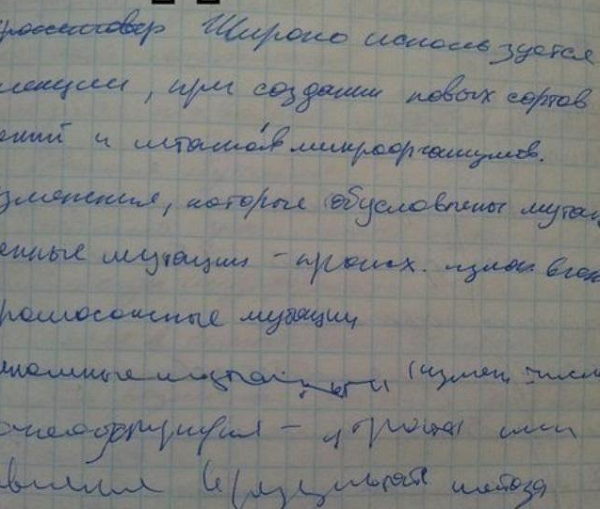 кроссинговер Широко используется
лекции, при создании новых сортов
ений и штаммов микроорганизмов.
зменения, которые обусловлены мутац
енные мутации - происх. измен. в ген
ромосомные мутации
еномные мутации (измен. числа
- утрата или